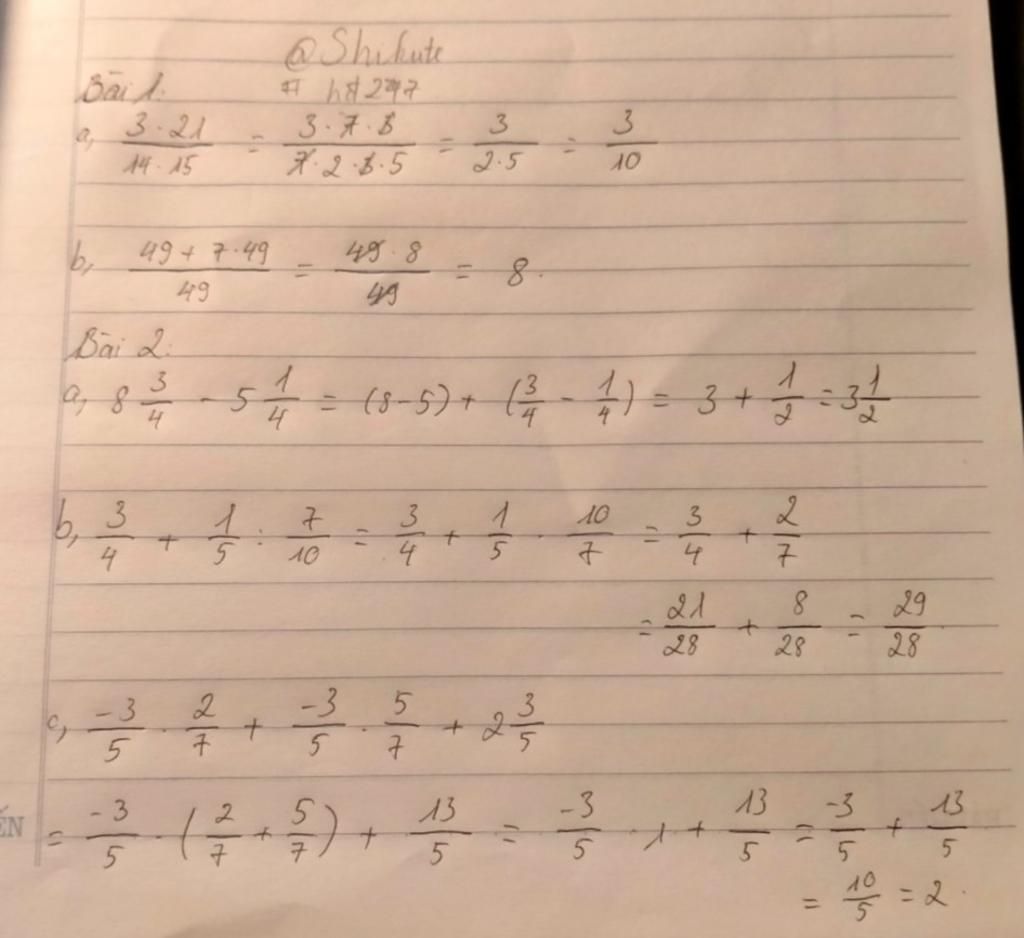 @Shikute
# h#247
Bài 1:
a, 3·21/14·15 = 3·7·3/7·2·3·5 = 3/2·5 = 3/10
b, 49+7·49/49 = 49·8/49 = 8.
Bài 2:
a, 8 3/4 - 5 1/4 = (8-5) + (3/4 - 1/4) = 3 + 1/2 = 3 1/2
b, 3/4 + 1/5 : 7/10 = 3/4 + 1/5 · 10/7 = 3/4 + 2/7
= 21/28 + 8/28 = 29/28
c, -3/5 · 2/7 + -3/5 · 5/7 + 2 3/5
= -3/5 · (2/7 + 5/7) + 13/5 = -3/5 · 1 + 13/5 = -3/5 + 13/5
= 10/5 = 2.